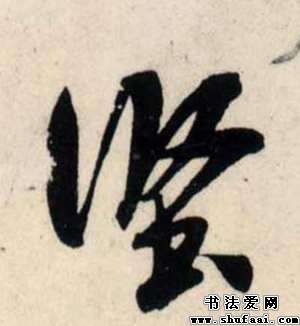 坚
书法爱网
www.shufaai.com